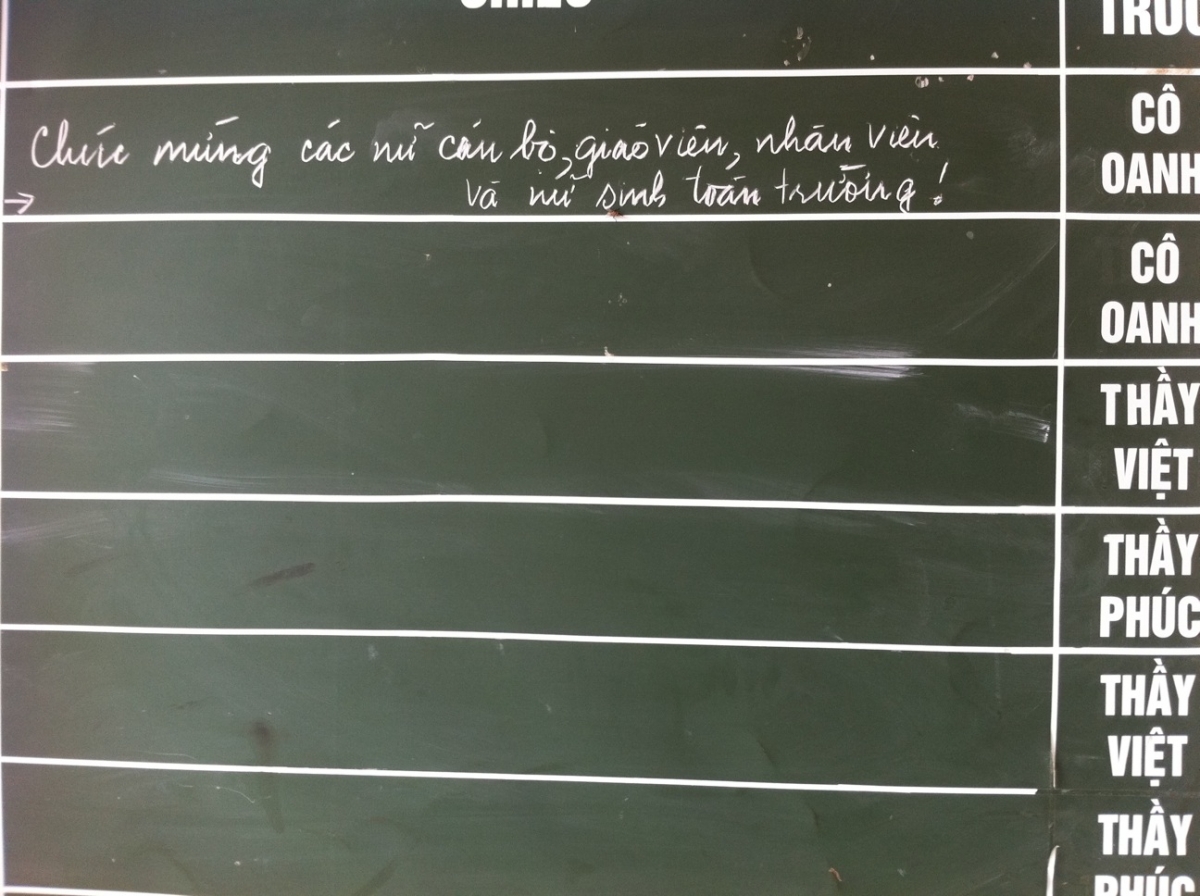 TRỰC
Chúc mừng các nữ cán bộ, giáo viên, nhân viên
và nữ sinh toàn trường!
CÔ
OANH
CÔ
OANH
THẦY
VIỆT
THẦY
PHÚC
THẦY
VIỆT
THẦY
PHÚC